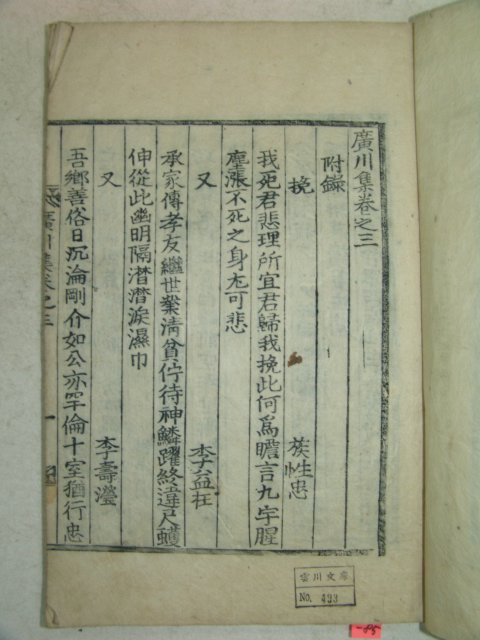 廣川集卷之三
附錄
挽 族性忠
我死君悲理所宜君歸我挽此何爲瞻言九宇腥
塵漲不死之身尤可悲
又 李益枉
承家傳孝友繼世業清貧佇待神鱗躍終違尺蠖
伸從此幽明隔潸潸淚濕巾
又 李壽瀅
吾鄕善俗日沉淪剛介如公亦罕倫十室猶行忠
廣川集卷之三
一
雲川文庫
No. 493